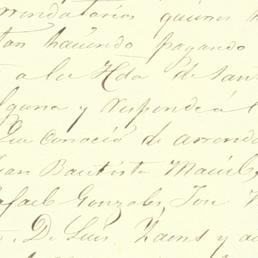 arrendatarios quienes h
tan haciendo pagando
a la Hda de San
alguna y responde á l
Que conoció de arrenda
Juan Bautista Maciel,
Rafael Gonzales, Jose
D. Luis y a